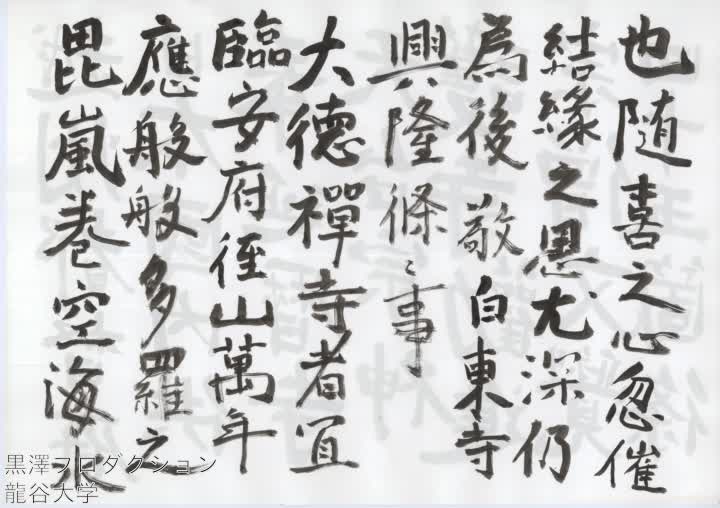 也随喜之心忽催
結縁之思尤深仍
為後 敬白東寺
興隆條々事
大德禪寺者宜
臨安府徑山萬年
應般般多羅之
毘嵐巻空海水
黒澤プロダクション
龍谷大学